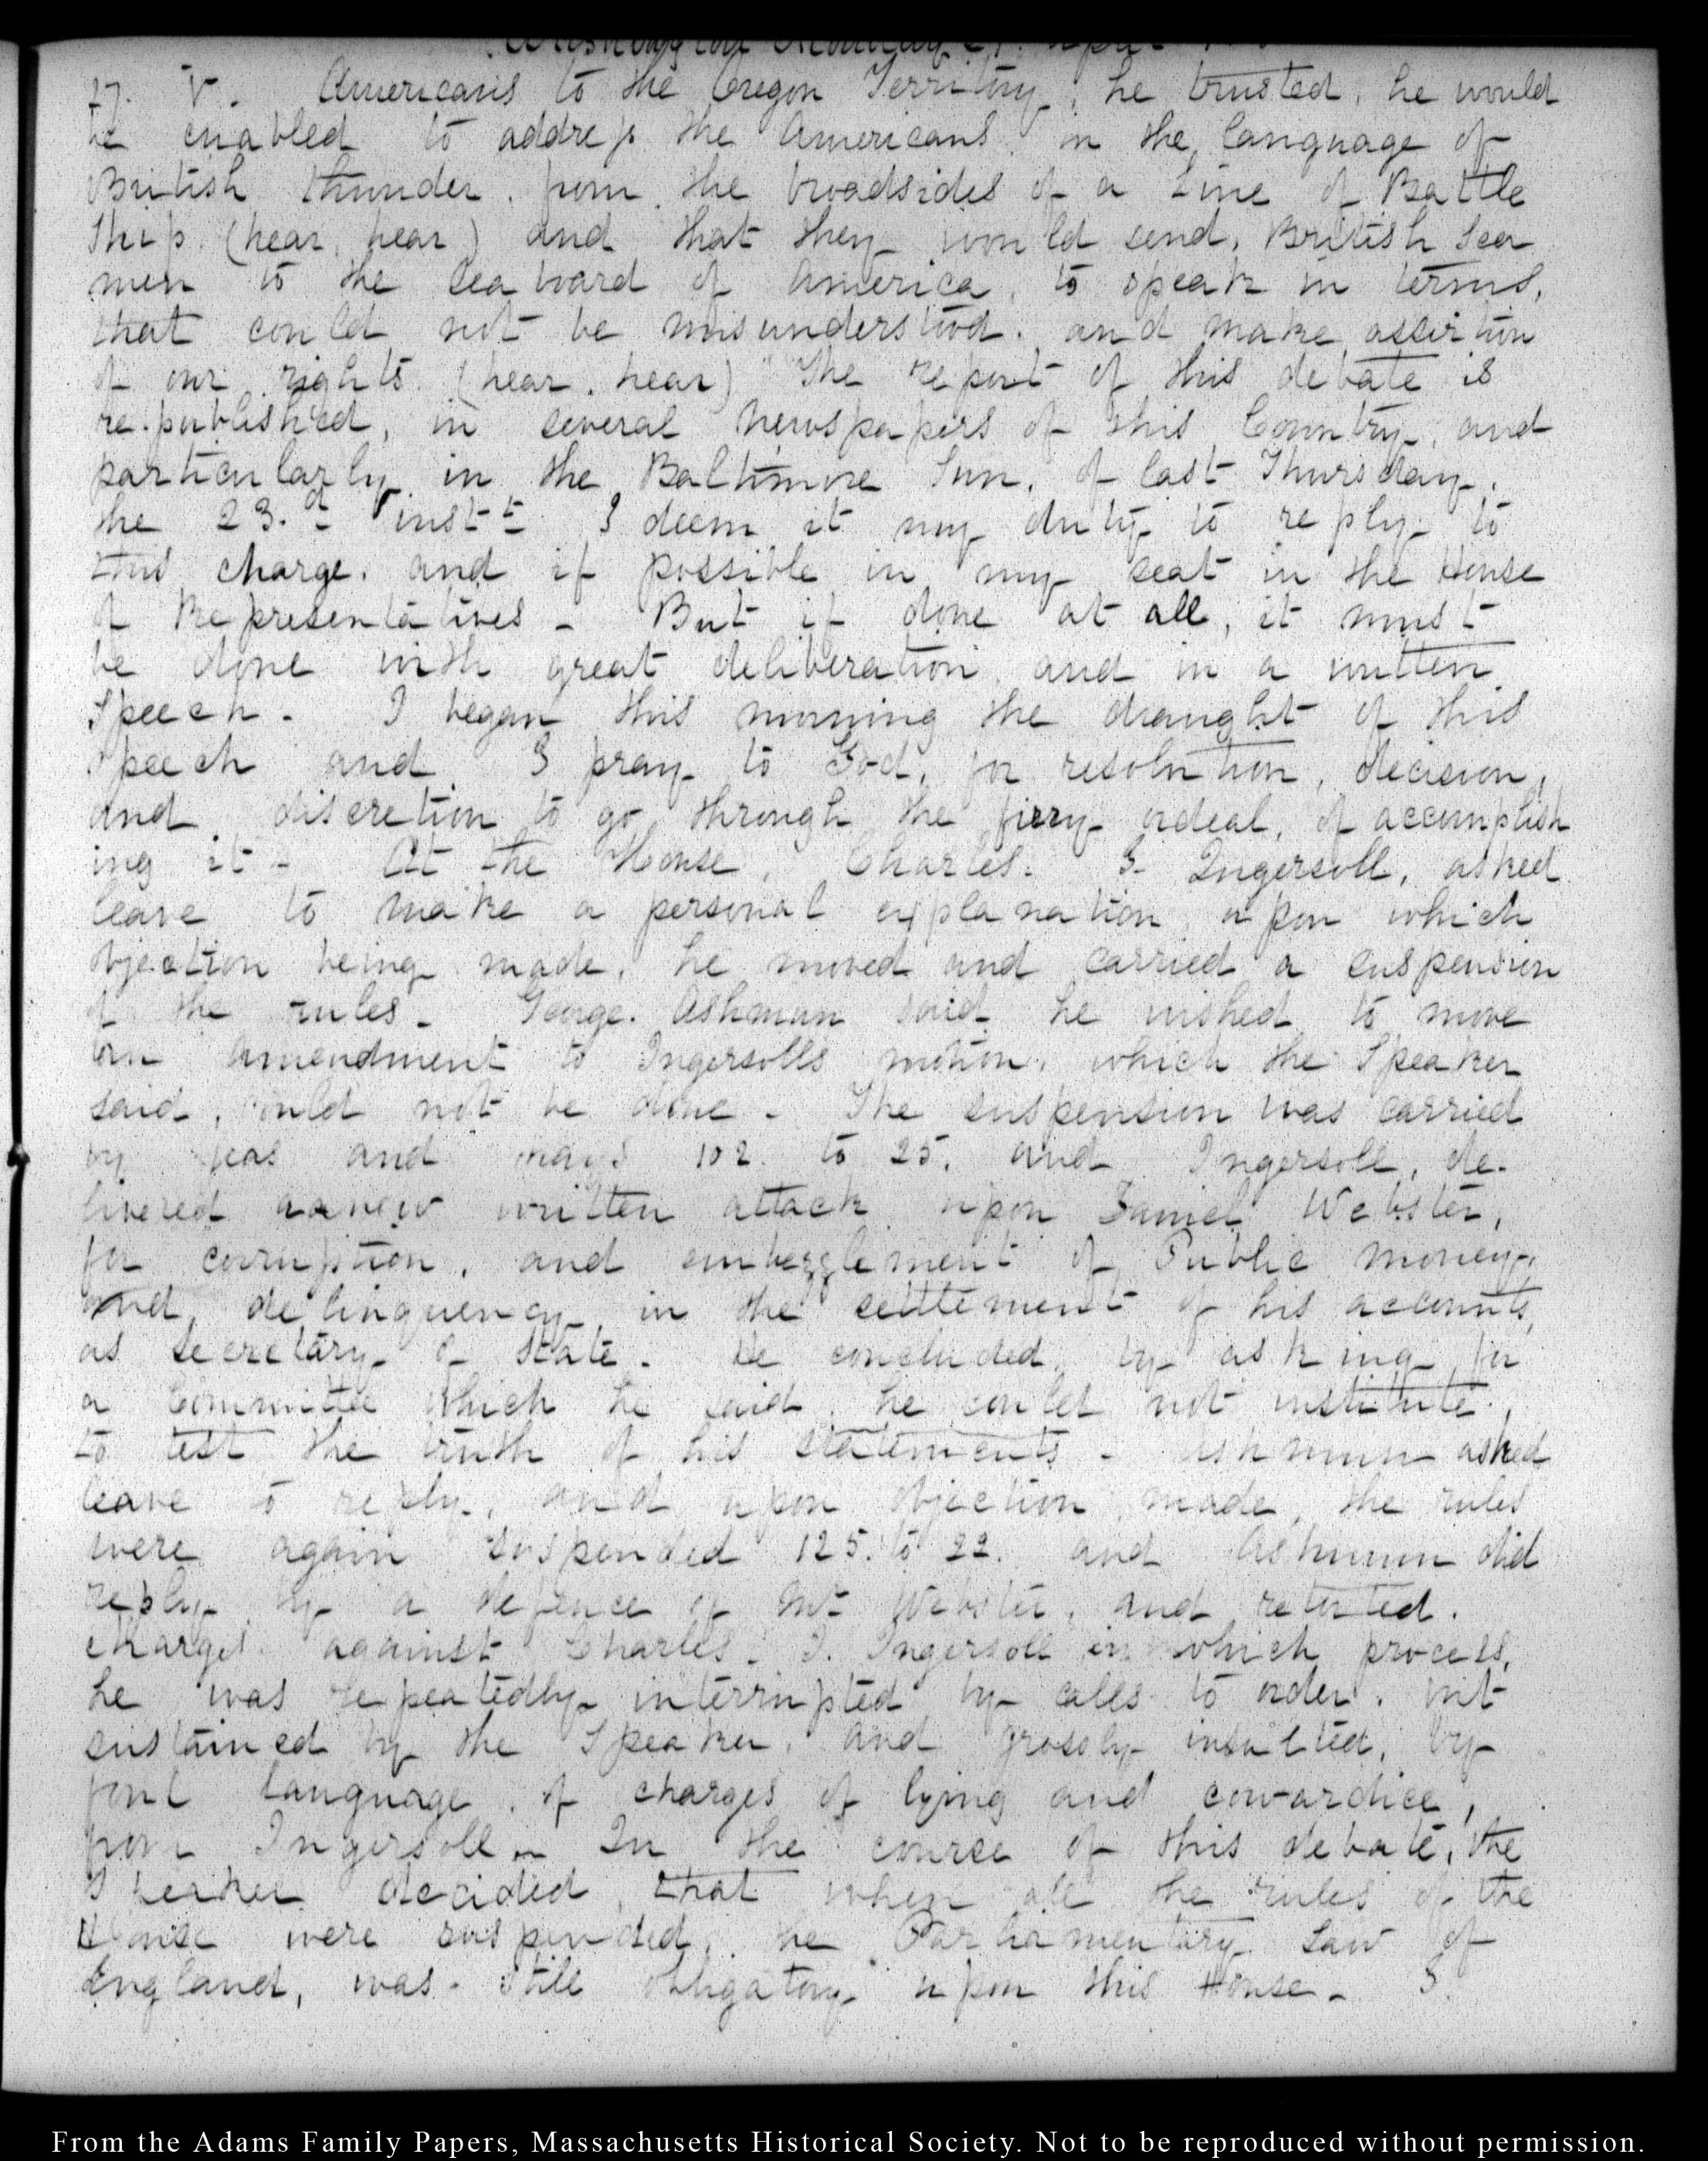 Washington Monday 27. April
27. V. Americans to the Oregon Territory, he trusted, he would
be enabled to address the Americans in the language of
British thunder. from the broadsides of a Line of Battle
Ship (hear, hear) and that they would send, British Sea
men to the Seaboard of America, to speak in terms,
that could not be misunderstood. and make assertion
of our rights. (hear, hear)" The report of this debate is
re-published, in several Newspapers of this Country, and
particularly in the Baltimore Sun, of last Thursday,
the 23.d instt. I deem it my duty to reply to
this charge. and if possible in my seat in the House
of Representatives - But if done at all, it must
be done with great deliberation and in a written
Speech. I began this morning the draught of this
Speech and I pray to God, for resolution, decision,
and discretion to go through the fiery ordeal, of accomplish
ing it - At the House, Charles. J. Ingersoll, asked
leave to make a personal explanation, upon which
objection being made, he moved and carried a suspension
of the rules - George. Ashmun said he wished to move
an amendment to Ingersolls motion, which the Speaker
said, could not be done - The suspension was carried
by yeas and nays 102 to 25, and Ingersoll, de-
livered a new written attack upon Daniel Webster,
for corruption, and embezzlement of Public money,
and, delinquency in the settlement of his accounts,
as Secretary of State. He concluded, by asking for
a Committee which he said, he could not institute,
to test the truth of his statements - Ashmun asked
leave to reply, and upon objection made, the rules
were again suspended 125. to 22. and Ashmun did
reply by a defence of Mr Webster, and retorted.
charges against Charles. J. Ingersoll in which process,
he was repeatedly interrupted by calls to order. but
sustained by the Speaker, and grossly insulted, by
foul language, of charges of lying and cowardice,
from Ingersoll - In the course of this debate, the
Speaker decided, that when all the rules of the
House were suspended, the Parliamentary Law of
England, was still obligatory upon this House - I
From the Adams Family Papers, Massachusetts Historical Society. Not to be reproduced without permission.